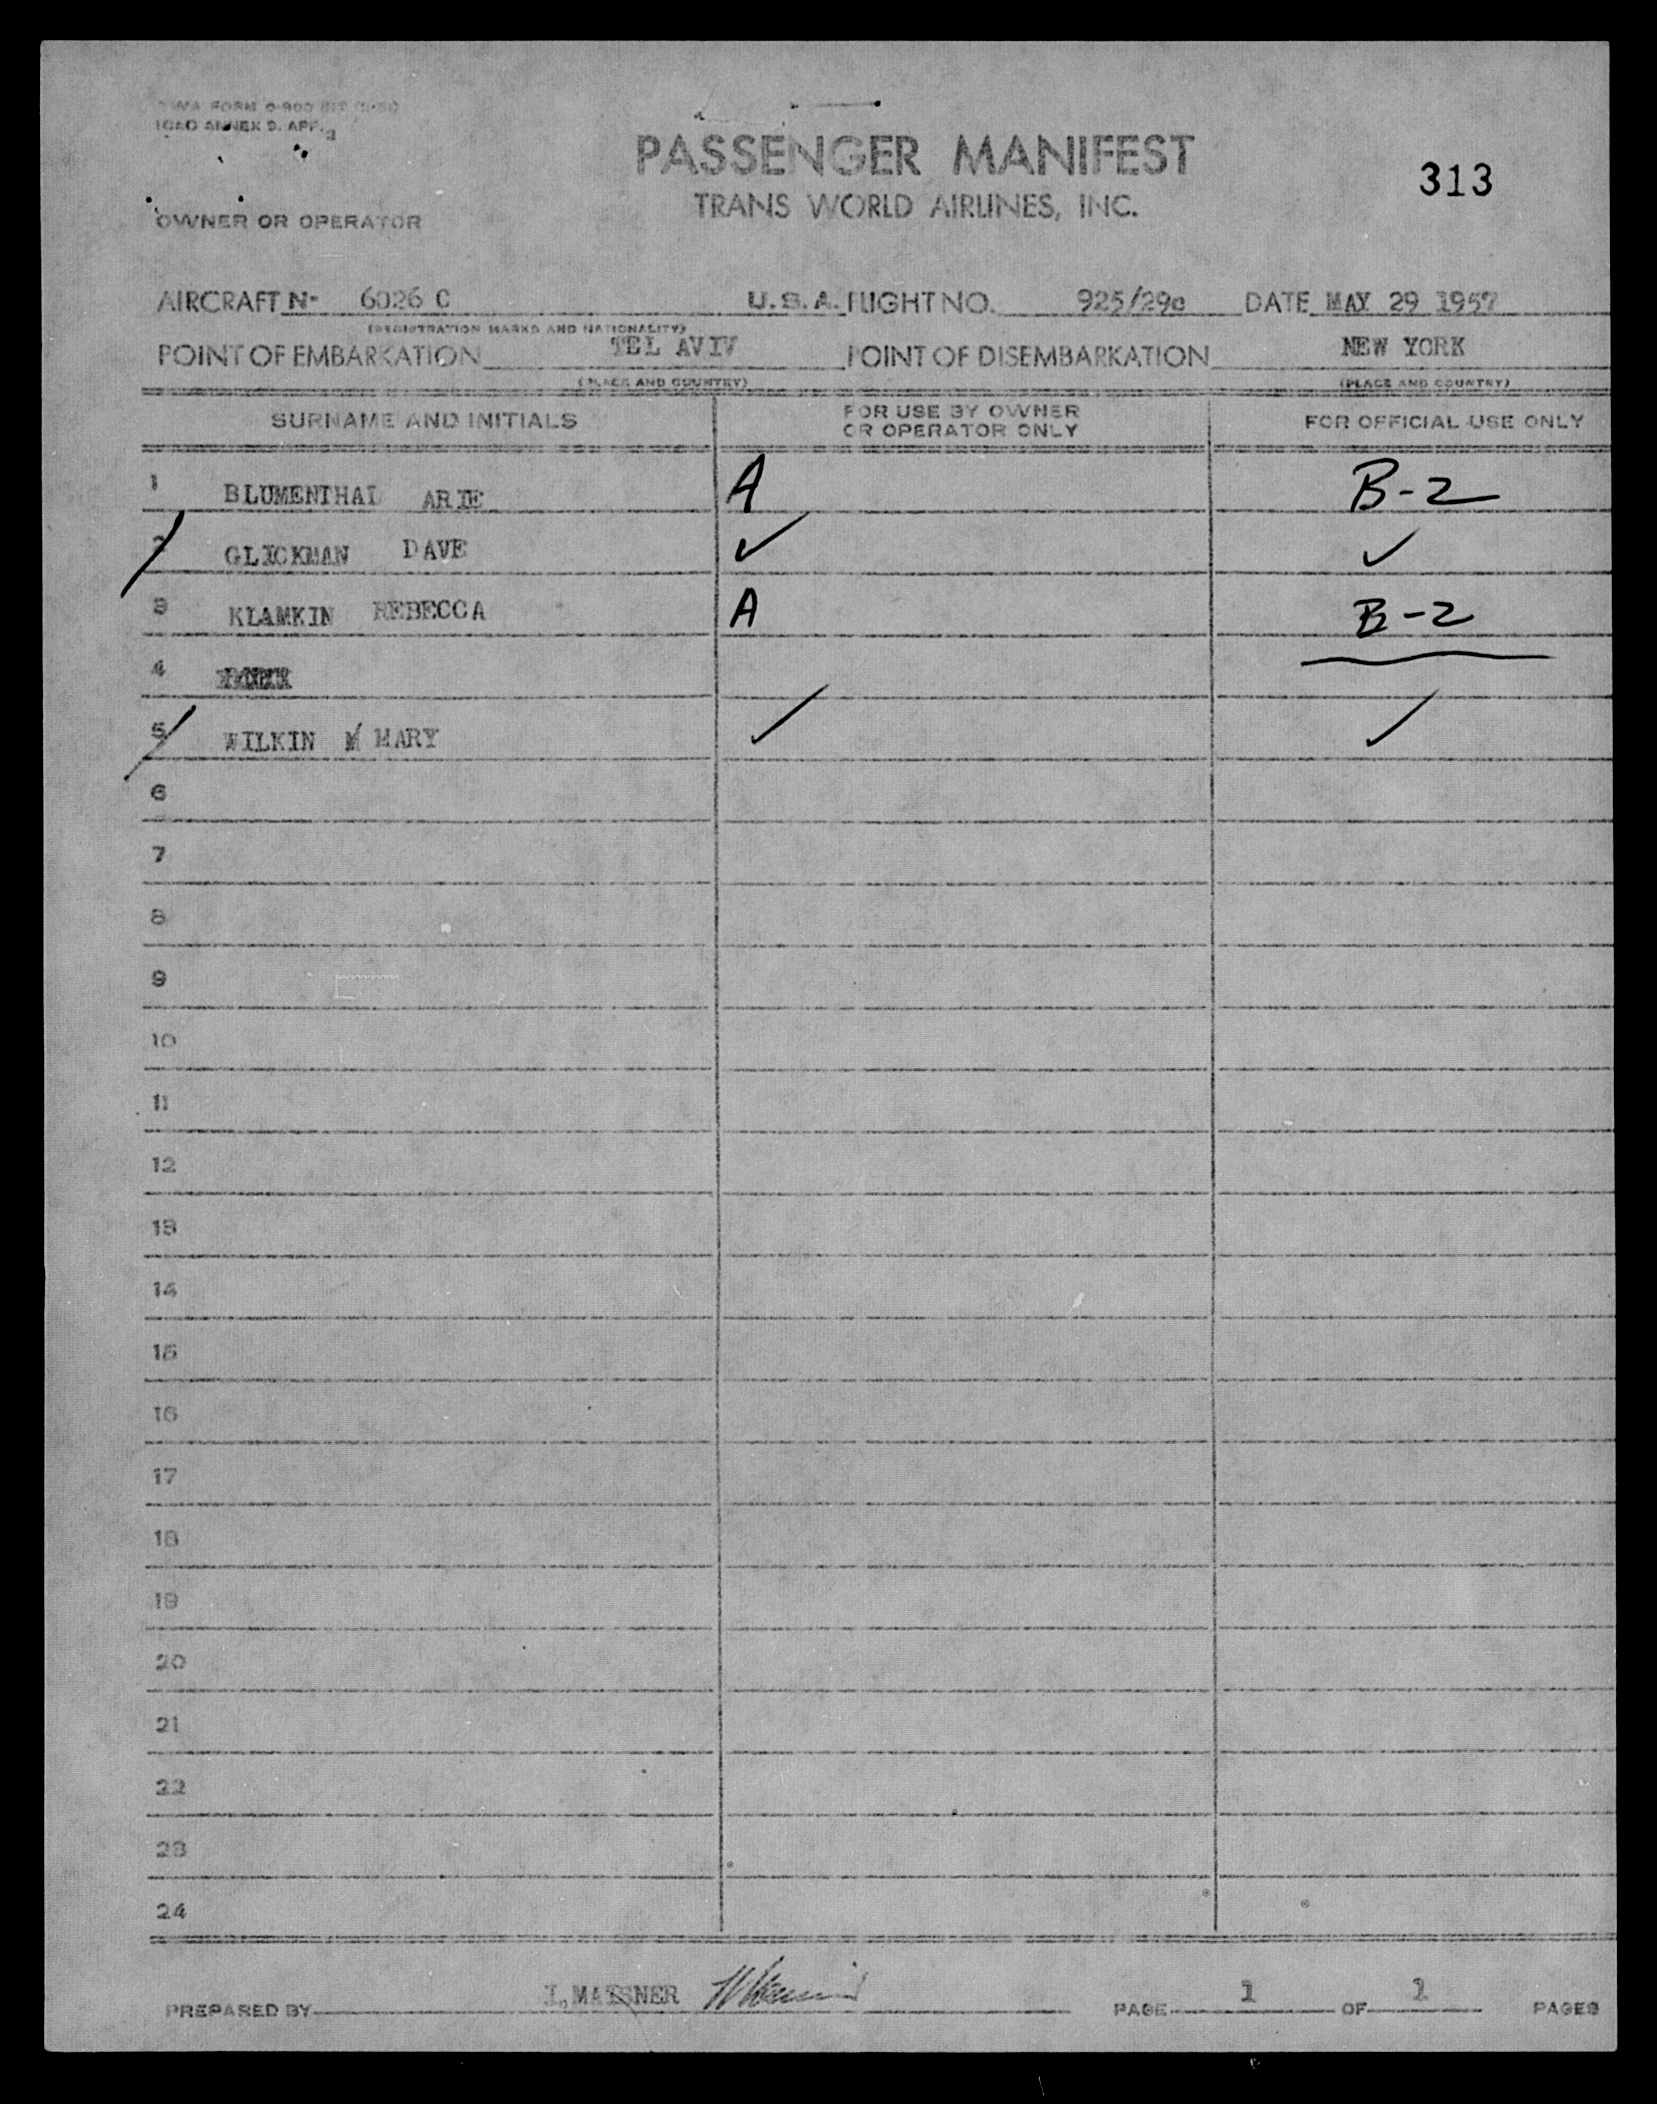 TWA FORM
ICAO ANNEX 9. APP. 3
PASSENGER MANIFEST
313
TRANS WORLD AIRLINES, INC.
OWNER OR OPERATOR
AIRCRAFT No 6026 C U.S.A. FLIGHT NO. 925/29c DATE MAY 29 1957
(REGISTRATION MARKS AND NATIONALITY)
POINT OF EMBARKATION TEL AVIV POINT OF DISEMBARKATION NEW YORK
(PLACE AND COUNTRY) (PLACE AND COUNTRY)
SURNAME AND INITIALS FOR USE BY OWNER OR OPERATOR ONLY FOR OFFICIAL USE ONLY
1 BLUMENTHAL ARIE A B-2
2 GLICKMAN DAVE ✓ ✓
3 KLAMKIN REBECCA A B-2
4
5 WILKIN MARY ✓ ✓
6
7
8
9
10
11
12
13
14
15
16
17
18
19
20
21
22
23
24
PREPARED BY PAGE 1 OF 1 PAGES